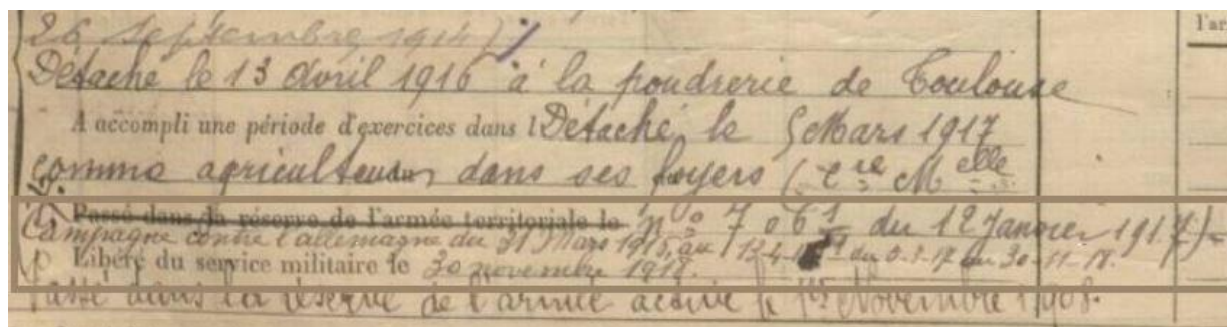 26 Septembre 1914)
Détaché le 13 Avril 1916 à la poudrerie de Toulouse
A accompli une période d'exercices dans l Détaché le 5 Mars 1917
comme agriculteur dans ses foyers (Cre Melle
Passé dans la réserve de l'armée territoriale le no 706 1 du 12 Janvier 1917)
Campagne contre l'allemagne du 31 Mars 1915 au 13-4- du 5-3-17 au 30-11-18.
Libéré du service militaire le 30 novembre 1918.
Passé dans la réserve de l'armée active le 1er Novembre 1908.